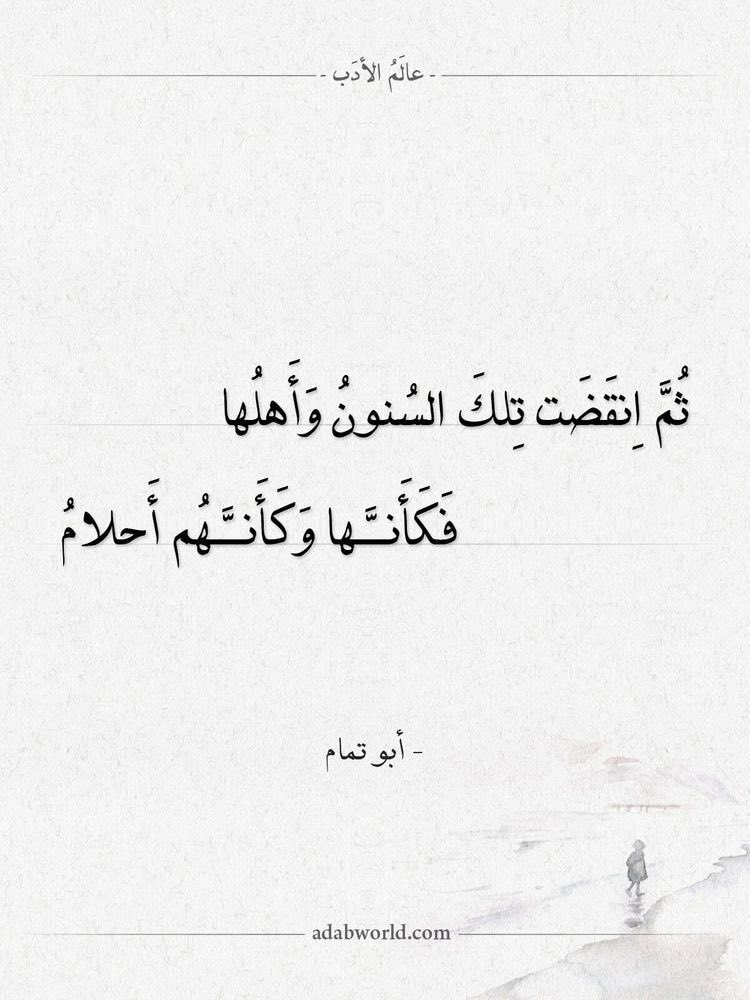 - عالَمُ الأدَب -
ثُمَّ اِنقَضَت تِلكَ السُنونُ وَأَهلُها
فَكَأَنَّـــها وَكَأَنَّـــهُم أَحلامُ
- أبو تمام
adabworld.com